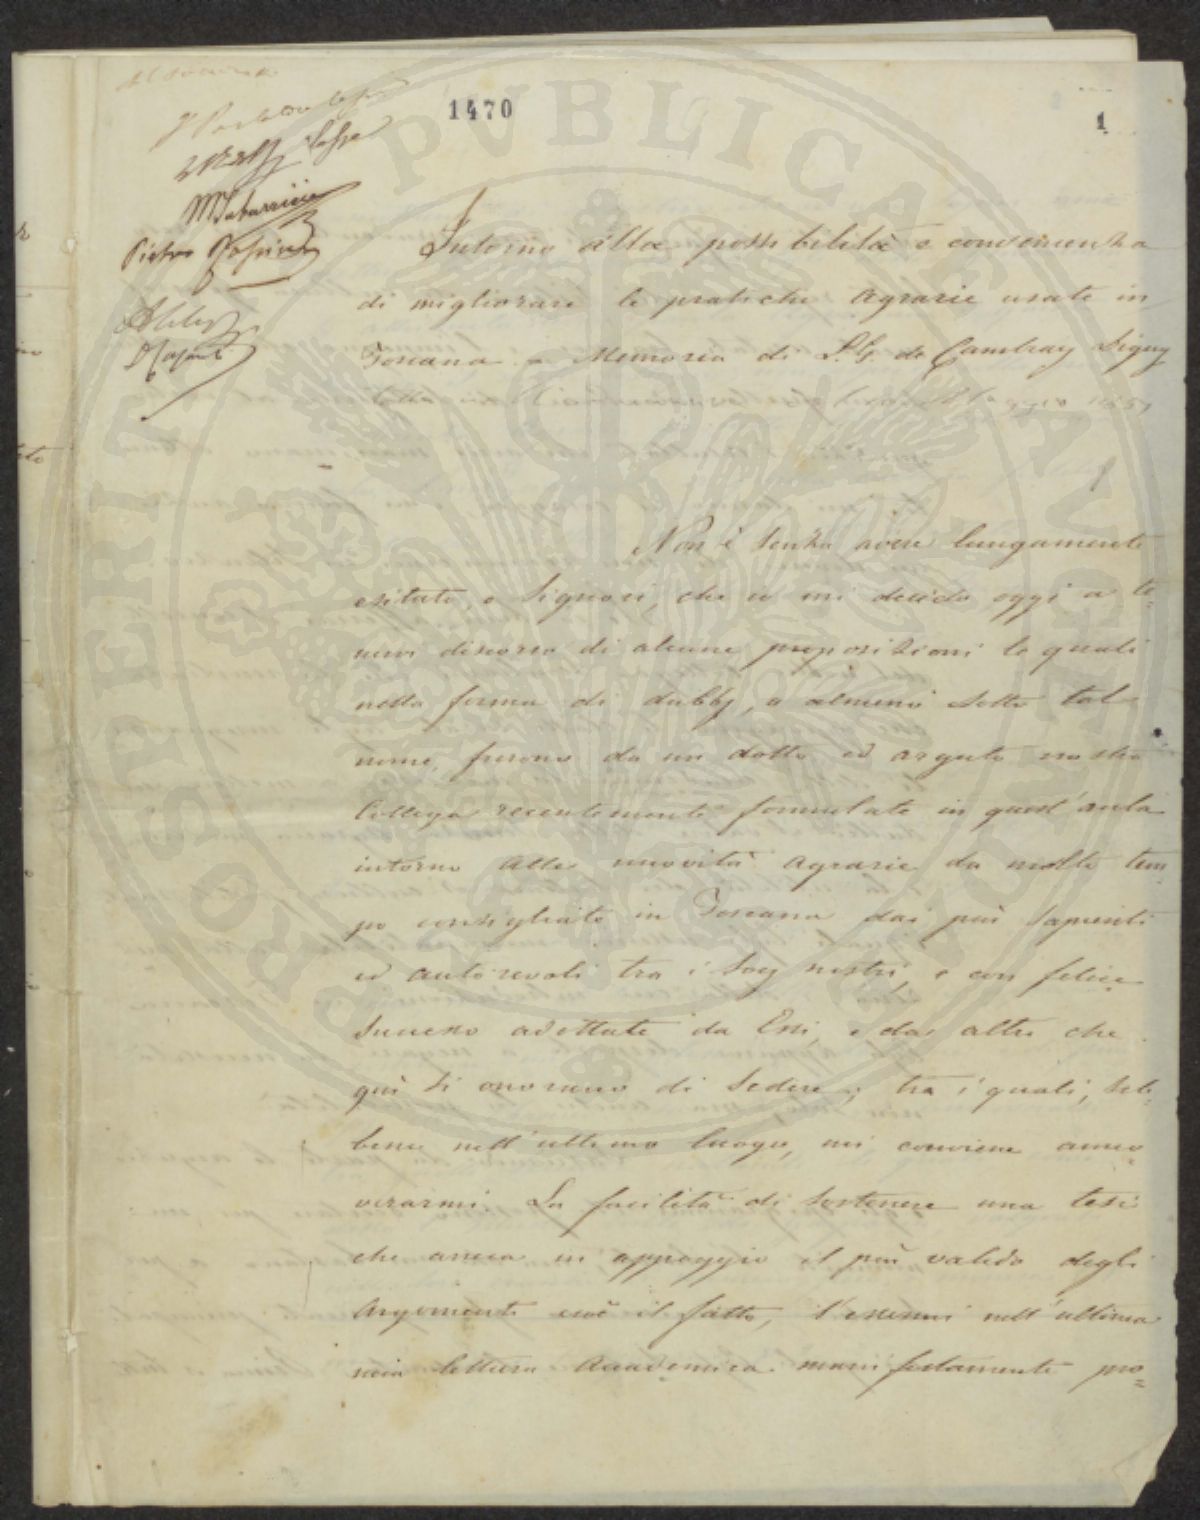 1470
1
Intorno alla possibilità e convenienza
di migliorare le pratiche agrarie usate in
Toscana = Memoria di L. G. de Cambray Digny
Non è senza avere lungamente
esitato, o Signori, che io mi decido oggi a te=
nervi discorso di alcune proposizioni le quali
nella forma di dubbj, o almeno sotto tal
nome, furono da un dotto ed arguto nostro
Collega recentemente formulate in quest'aula
intorno alle novità agrarie da molto tem=
po consigliate in Toscana dai più sapienti
ed autorevoli tra i Socj nostri, e con felice
successo adottate da Essi, e da altri che
quì si onorano di sedere; tra i quali, seb=
bene nell'ultimo luogo, mi conviene anno=
verarmi. La facilità di sostenere una tesi
che aveva in appoggio il più valido degli
argomenti cioè il fatto, l'essermi nell'ultima
mia lettura Accademica manifestamente pro=
PVBLICAE
PROSPERITATI